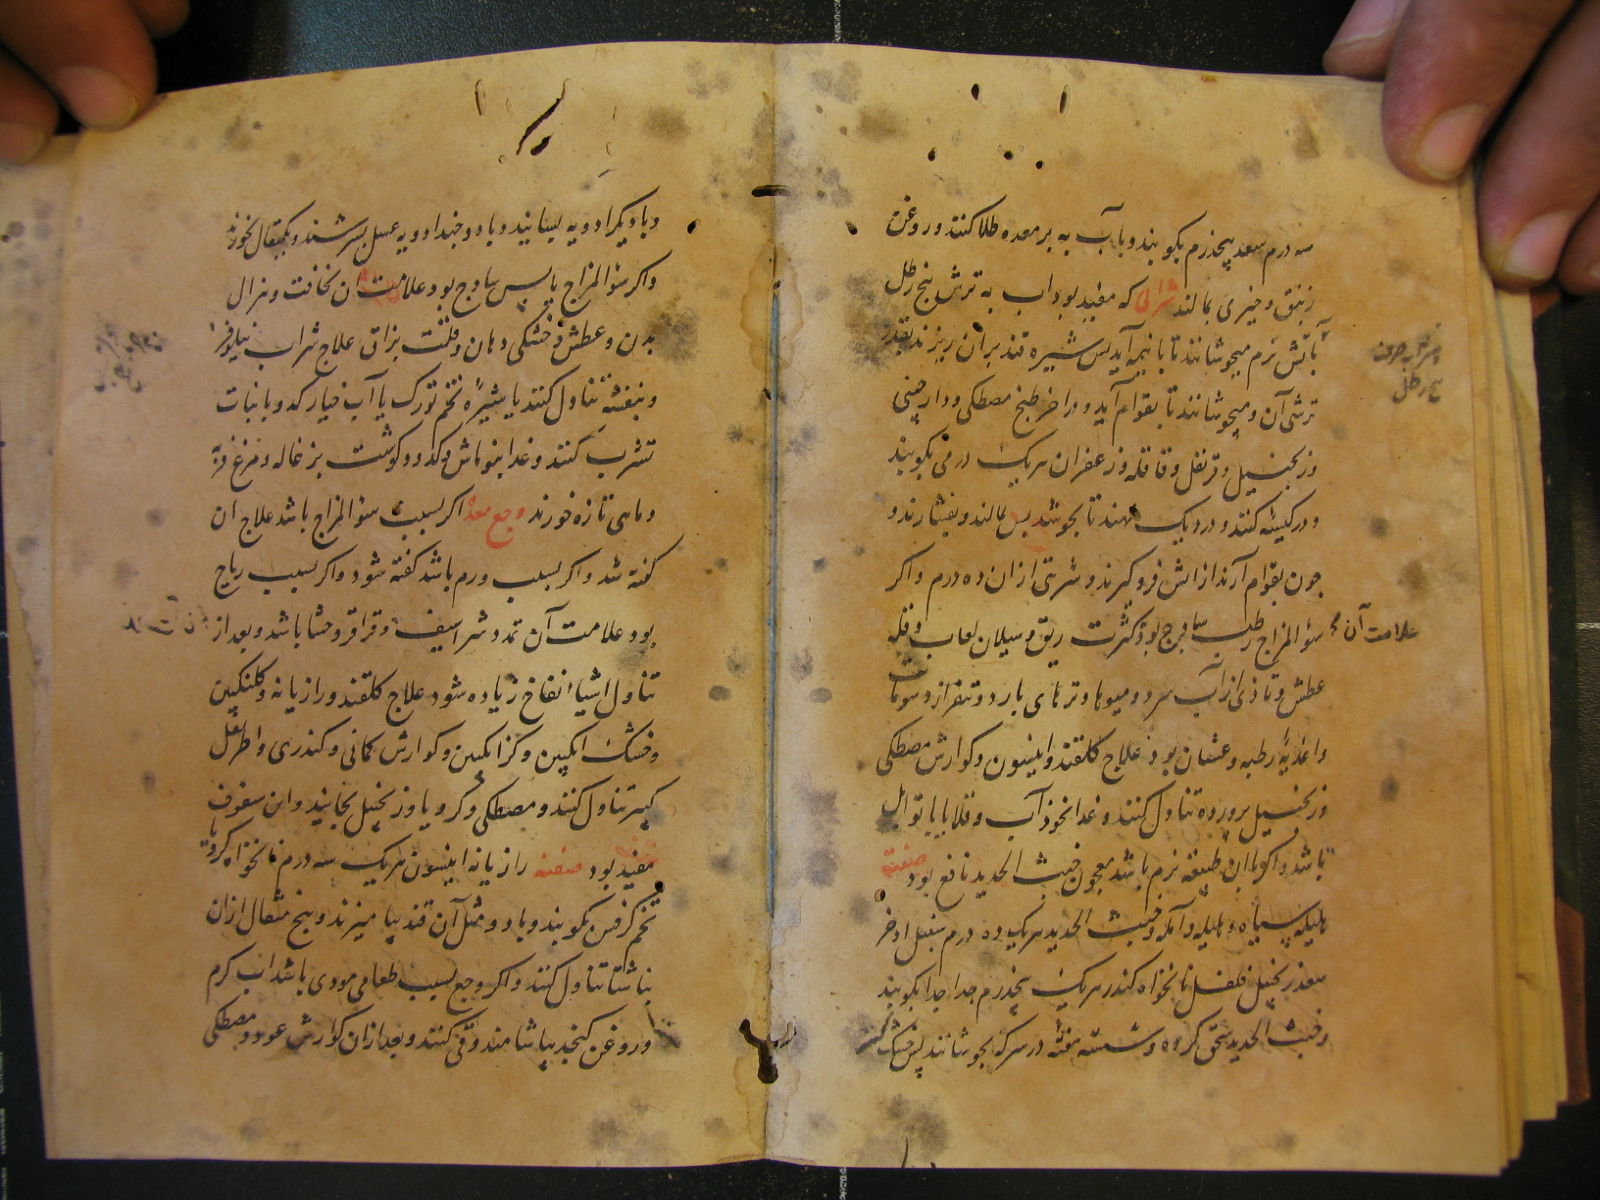 سه درم سعد پنجدرم بکوبند و بآب به بر معده طلا کنند و روغن
زنبق و خیری بمالند شرابی که مفید بود اب به ترش پنج رطل
بآتش نرم میجوشانند تا بانیمه آید پس شیره قند بران ریزند بقدر
ترشی آن و میجوشانند تا بقوام آید و در اخر طبخ مصطکی و دارچینی
و زنجبیل و قرنفل و قاقله و زعفران هریک درمی بکوبند
و در کیسه کنند و در دیک نهند تا بجوشد پس بمالند و بفشارند و
چون بقوام آرند از اتش فرو گیرند و شربتی ازان ده درم و اکر
سؤ المزاج رطب ساذج بود کثرت ریق و سیلان لعاب و قله
علامت آن
عطش و تاذی از آب سرد و میوها و ترهای بارد و تنفر از دسومات
و اغذیهٔ رطبه و غشیان بود علاج کلقند و انیسون و کوارش مصطکی
و زنجبیل پرورده تناول کنند و غدا نخوذآب و قلایا با توابل
باشد و اکر با این طبیعة نرم باشد معجون خبث الحدید نافع بود صفته
هلیله سیاه و بلیله و آمله و خبث الحدید هریک ده درم سنبل اذخر
سعد زنجبیل فلفل نانخواه کندر هریک پنجدرم جدا جدا بکوبند
و خبث الحدید سحق کرده و شسته هفته در سرکه بجوشانند پس خشک کنند
پنج رطل
و با دیکر ادویه بیامیزند و با دو چندادویه عسل بسرشند و یکمثقال بخورند
و اکر سؤ المزاج یابس ساذج بود علامت ان نحافت و هزال
بدن و عطش و خشکی دهان و قلت بزاق علاج شراب نیلوفر
و بنفشه تناول کنند یا شیرهٔ تخم تورک یا آب خیار کدو با نبات
تشرب کنند و غدا بنو ماش و کدو و کوشت بزغاله و مرغ فربه
و ماهی تازه خورند وجع معده اکر بسبب سؤ المزاج باشد علاج ان
کفته شد و اکر بسبب ورم باشد کفته شود و اکر بسبب ریاح
بود علامت آن تمدد شراسیف و قراقر و جشا باشد و بعد از
تناول اشیاء نفاخ زیاده شود علاج کلقند و رازیانه و کلنکبین
و خشک انکبین و کزانکبین و کوارش کمانی و کندری و اطریفل
کبیر تناول کنند و مصطکی و کرویا و زنجبیل بخایند و این سفوف
مفید بود صفته رازیانه انیسون هریک سه درم نانخواه کرویا
تخم کرفس بکوبند و با دو مثل آن قند بیامیزند و پنج مثقال ازان
بناشتا تناول کنند و اکر وجع بسبب طعامی موذی باشد اب کرم
و روغن کنجد بیاشامند و قی کنند و بعد ازان کوارش عود و مصطکی